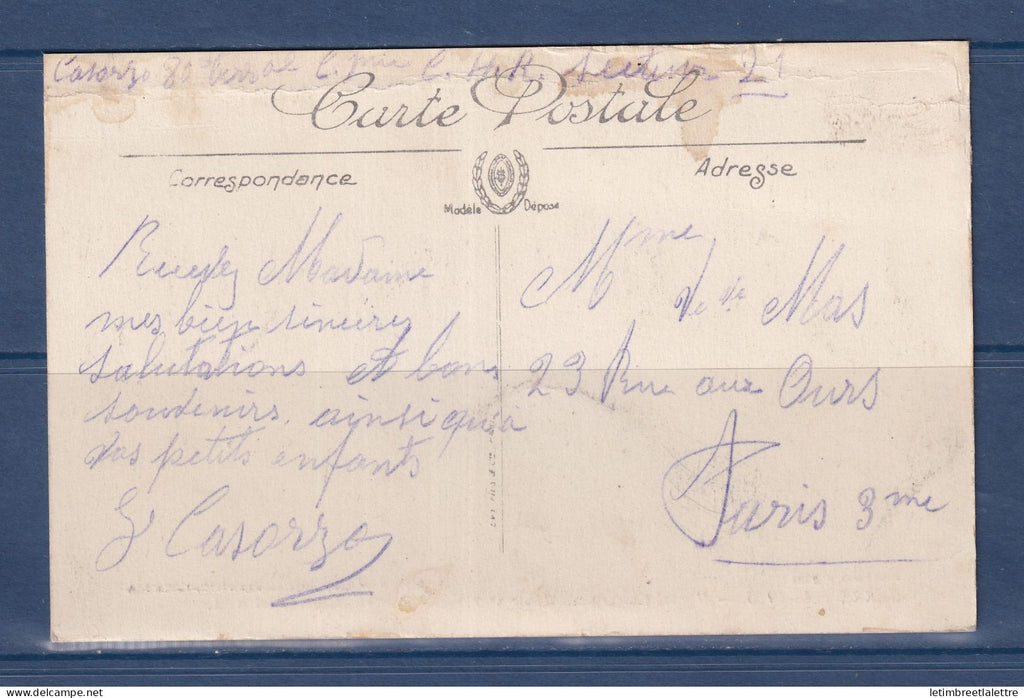 Casorzo 80e Terral C. pnie C. H. R. Secteur 21
Carte Postale
Correspondance
Adresse
Modèle Déposé
Recevez Madame
mes bien sincères
salutations et bons
souvenirs, ainsi qu'à
vos petits enfants
G Casorzo
Mme
Vve Mas
23 Rue aux Ours
Paris 3me
letimbreetlalettre